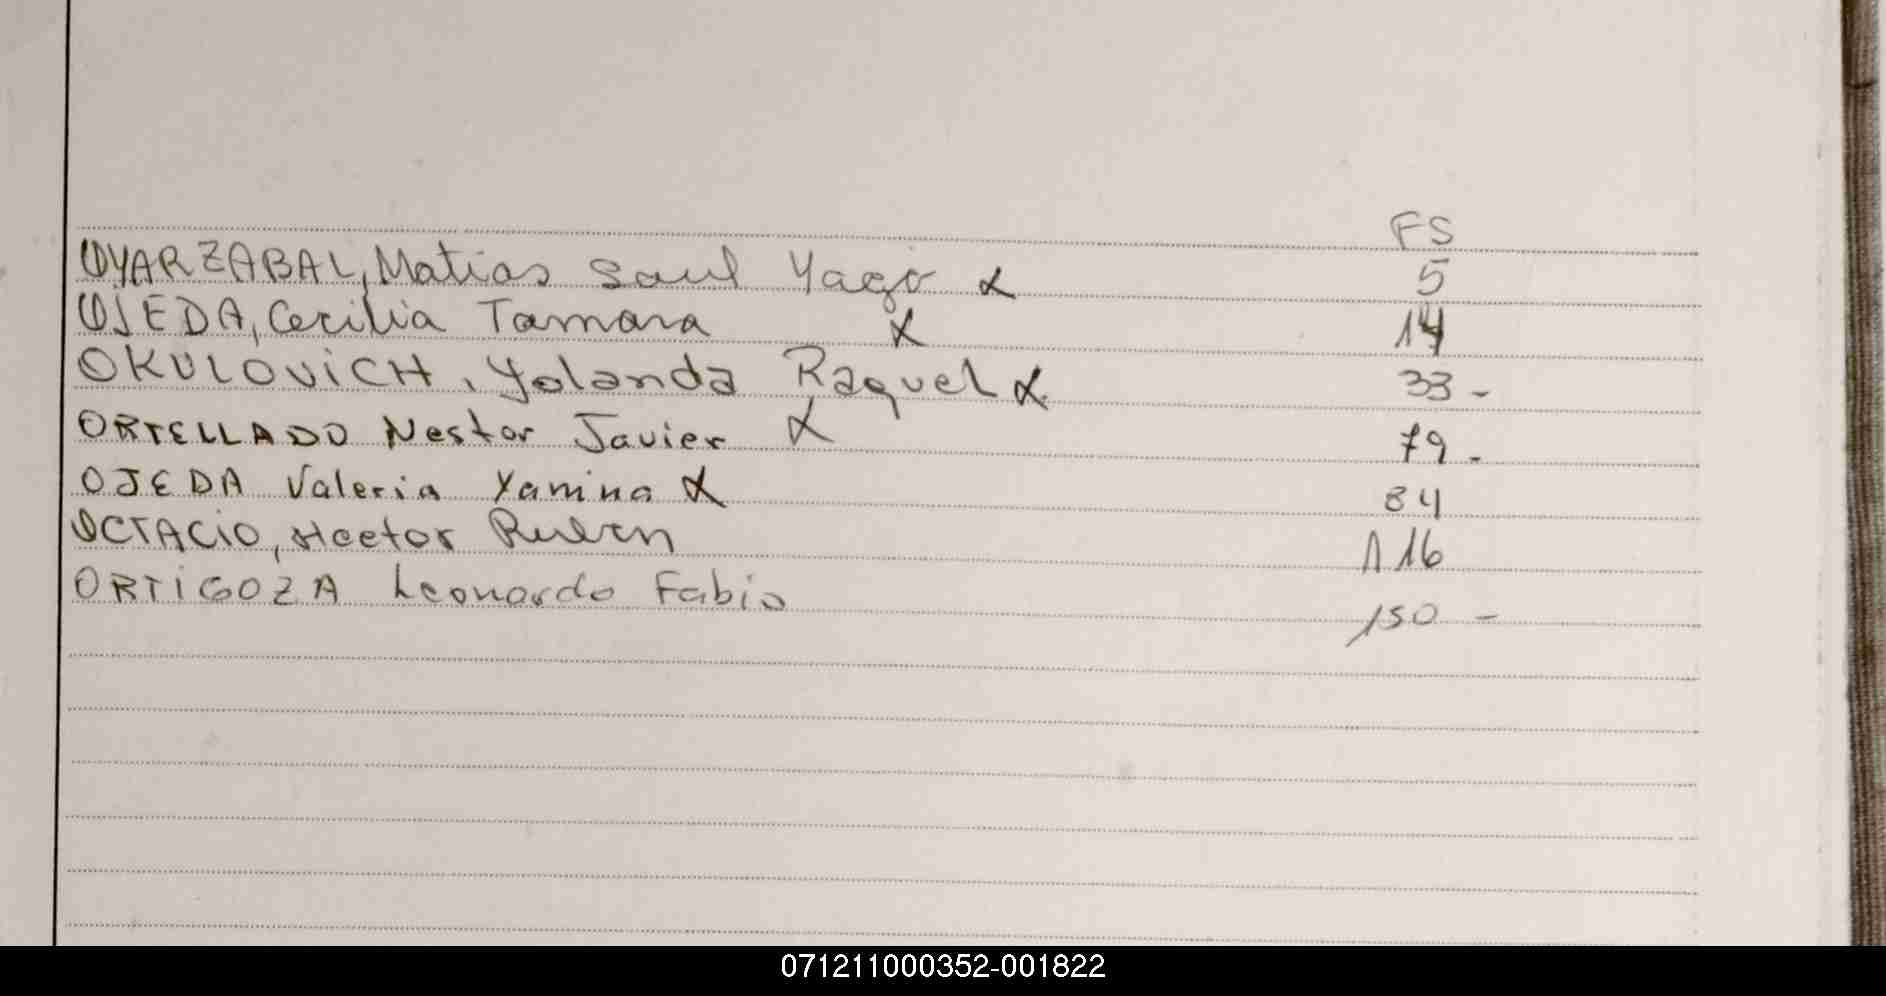 FS
OYARZABAL, Matias Saul Yago α 5
OJEDA, Cecilia Tamara α 14
OKULOVICH, Yolanda Raquel α 33 -
ORTELLADO Nestor Javier α 79 -
OJEDA Valeria Yanina α 84
OCTACIO, Hector Ruben 116
ORTIGOZA Leonardo Fabio 150 -
071211000352-001822